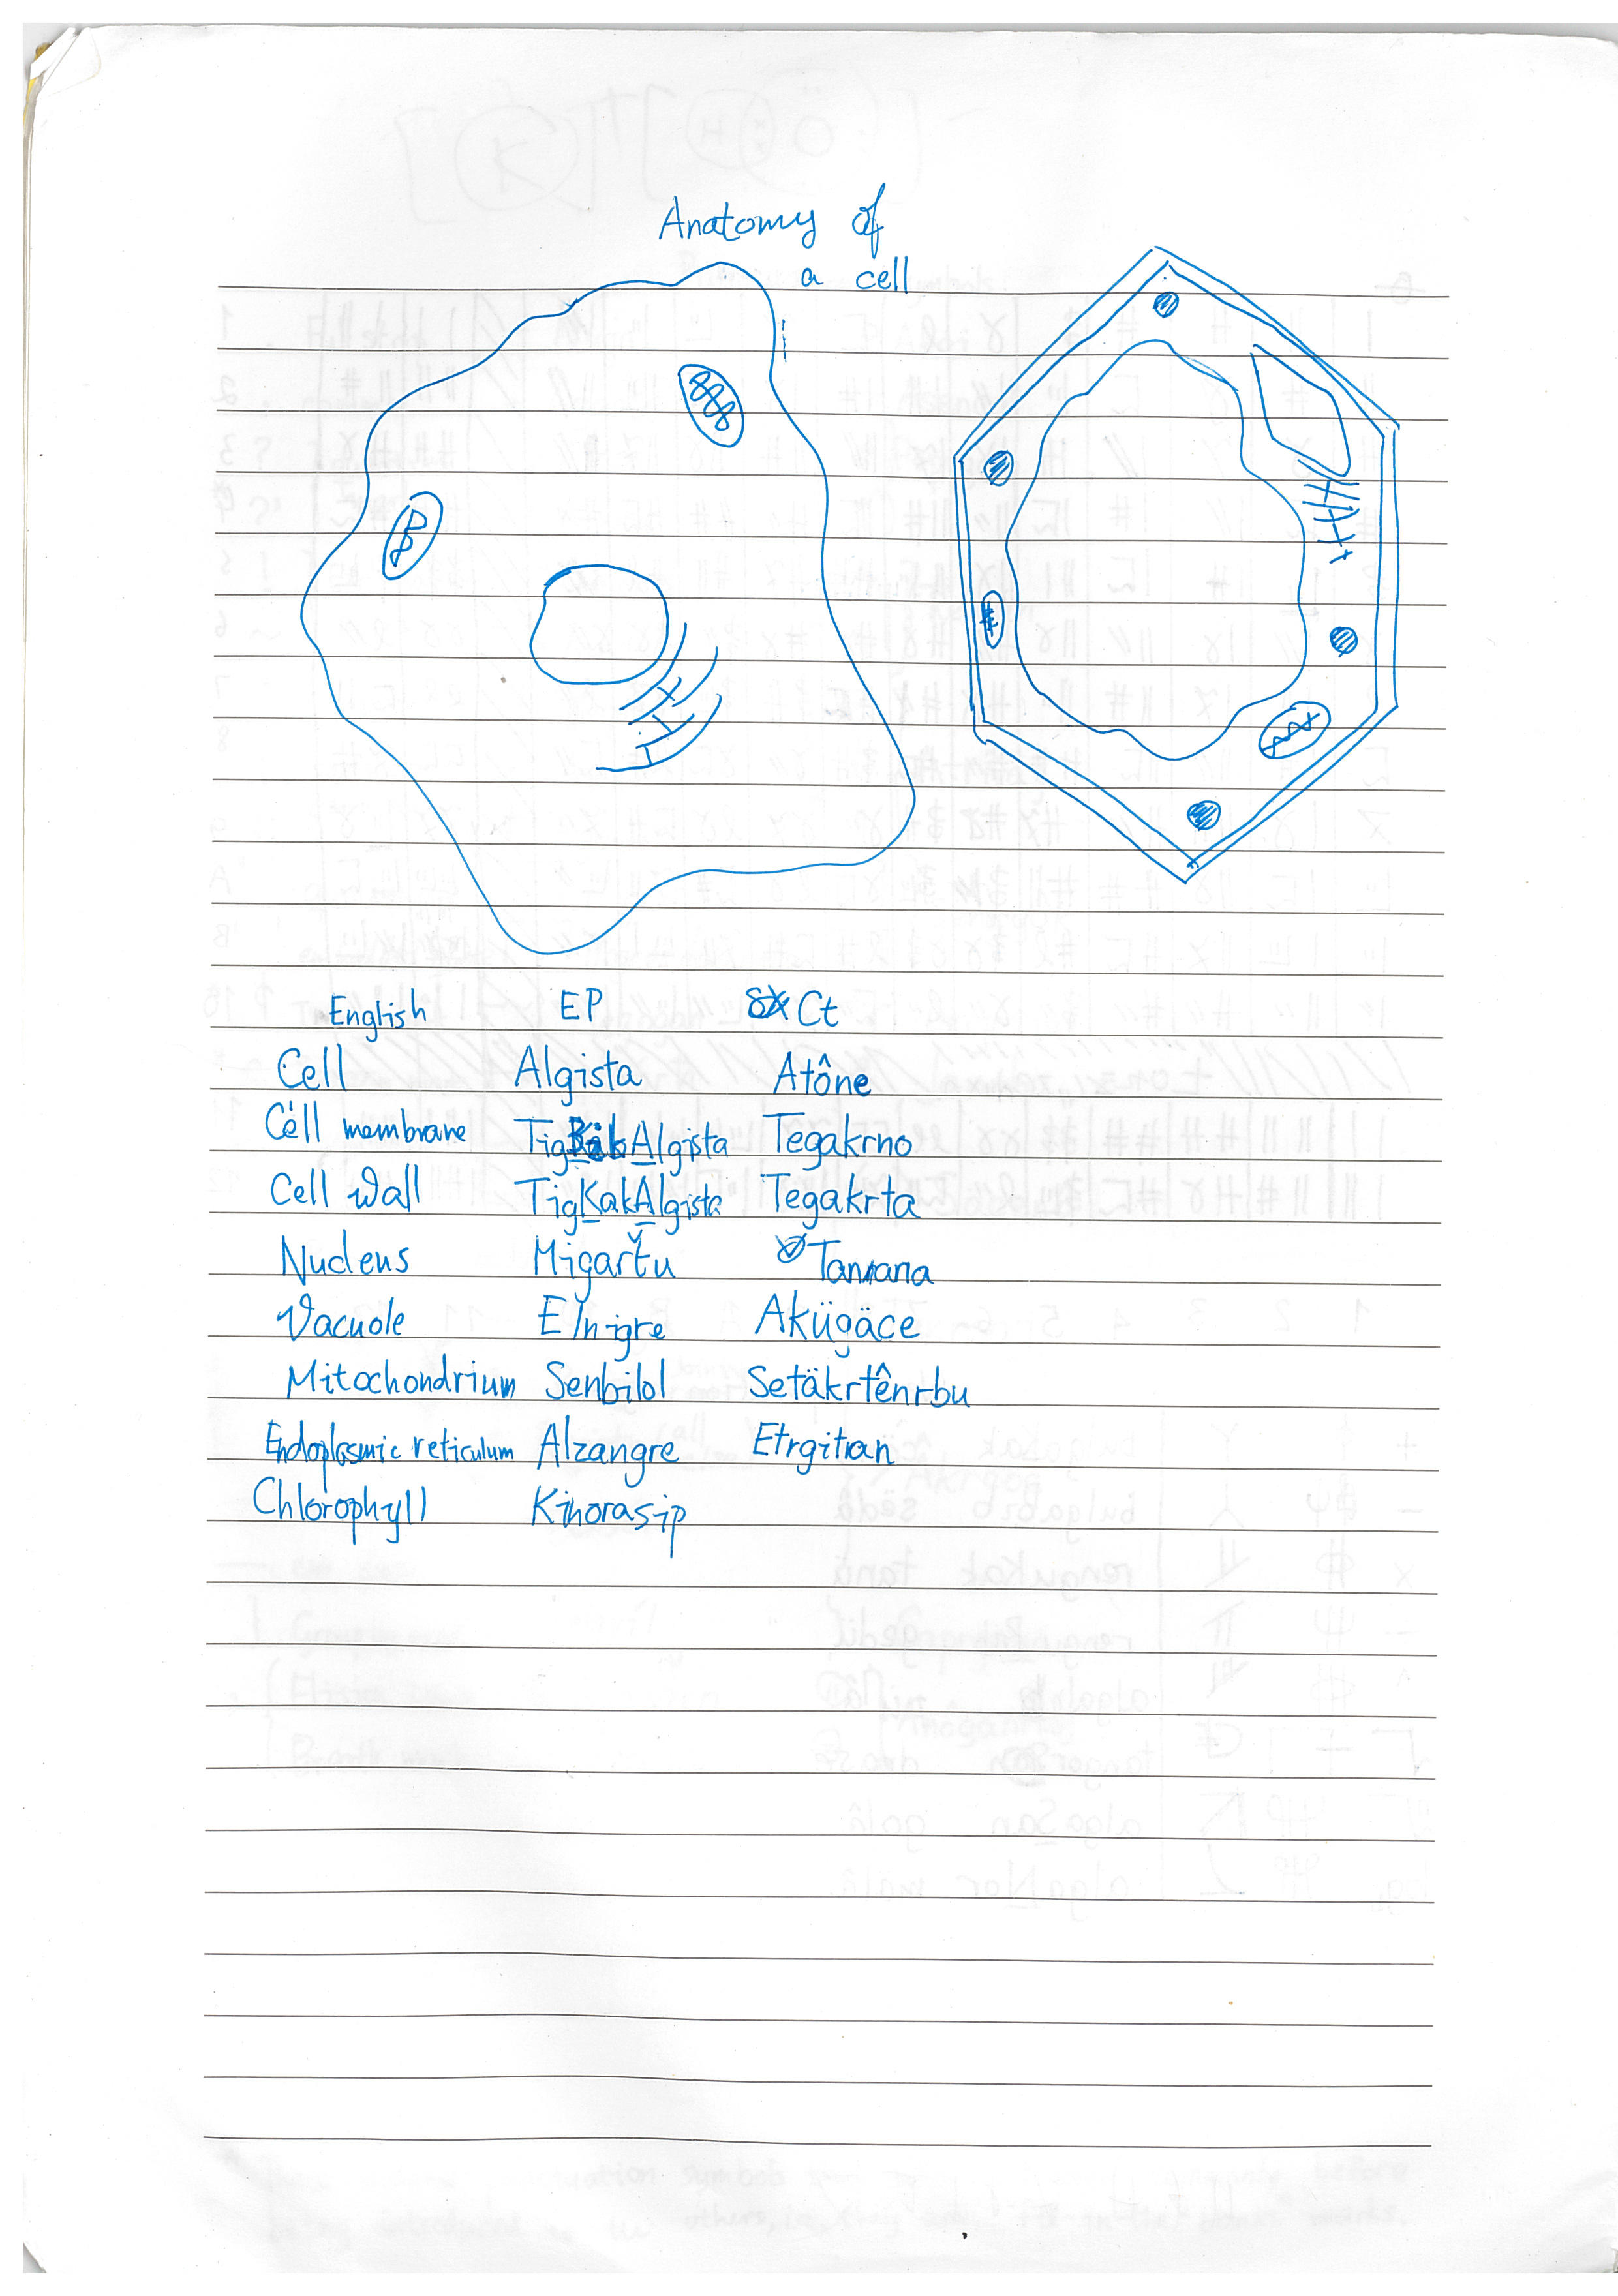 Anatomy of
a cell
English EP Ct
Cell Algista Atône
Cell membrane Tegakrno
Cell wall TigKakAlgista Tegakrta
Nucleus Migarťu
Vacuole Elnigre Aküğäce
Mitochondrium Senbilol Setäkrtênrbu
Endoplasmic reticulum Alzangre Etrgitran
Chlorophyll Kihorasip